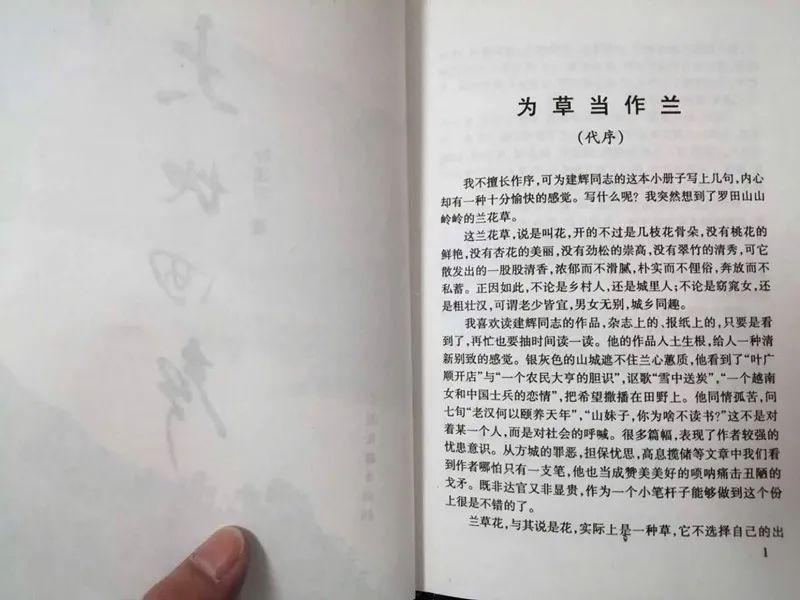 为草当作兰
(代序)
我不擅长作序,可为建辉同志的这本小册子写上几句,内心
却有一种十分愉快的感觉。写什么呢?我突然想到了罗田山山
岭岭的兰花草。
这兰花草,说是叫花,开的不过是几枝花骨朵,没有桃花的
鲜艳,没有杏花的美丽,没有劲松的崇高,没有翠竹的清秀,可它
散发出的一股股清香,浓郁而不滑腻,朴实而不俚俗,奔放而不
私蓄。正因如此,不论是乡村人,还是城里人;不论是窈窕女,还
是粗壮汉,可谓老少皆宜,男女无别,城乡同趣。
我喜欢读建辉同志的作品,杂志上的、报纸上的,只要是看
到了,再忙也要抽时间读一读。他的作品人土生根,给人一种清
新别致的感觉。银灰色的山城遮不住兰心蕙质,他看到了“叶广
顺开店”与“一个农民大亨的胆识”,讴歌“雪中送炭”,“一个越南
女和中国士兵的恋情”,把希望撒播在田野上。他同情孤苦,问
七旬“老汉何以颐养天年”,“山妹子,你为啥不读书?”这不是对
着某一个人,而是对社会的呼喊。很多篇幅,表现了作者较强的
忧患意识。从方城的罪恶,担保忧思,高息揽储等文章中我们看
到作者哪怕只有一支笔,他也当成赞美美好的唢呐痛击丑陋的
戈矛。既非达官又非显贵,作为一个小笔杆子能够做到这个份
上很是不错的了。
兰草花,与其说是花,实际上是一种草,它不选择自己的出
1